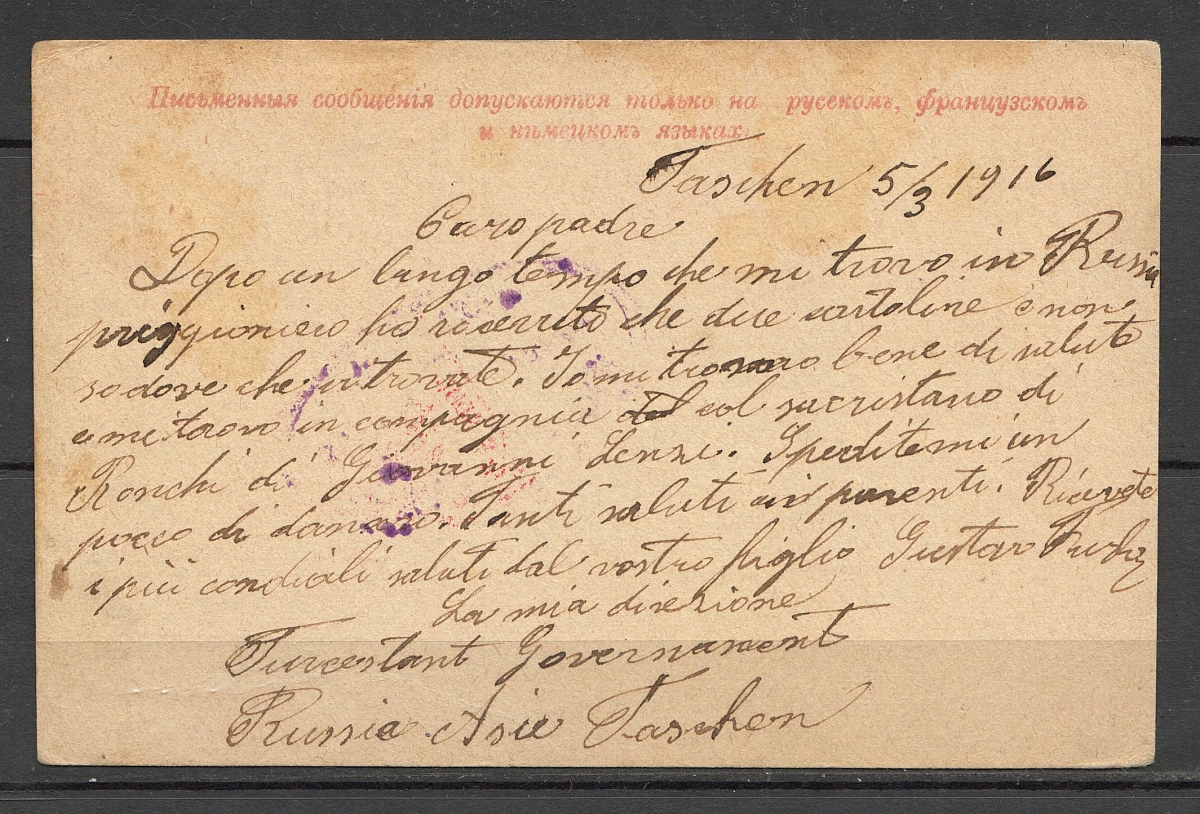 Письменныя сообщенія допускаются только на русскомъ, французскомъ
и нѣмецкомъ языкахъ.
Taschen 5/3 1916
Caro padre
Dopo un lungo tempo che mi trovo in Russia
priggioniero ho ricevuto che due cartoline e non
so dove che vi trovate. Io mi trovo bene di salute
e mi trovo in compagnia col sacristano di
Ronchi di Giovanni Lenzi. Speditemi un
poco di dannaro. Tanti saluti ai parenti. Ricevete
i più condiali saluti dal vostro figlio Gustavo
La mia direzione
Turcestant Governament
Russia Asie Taschen